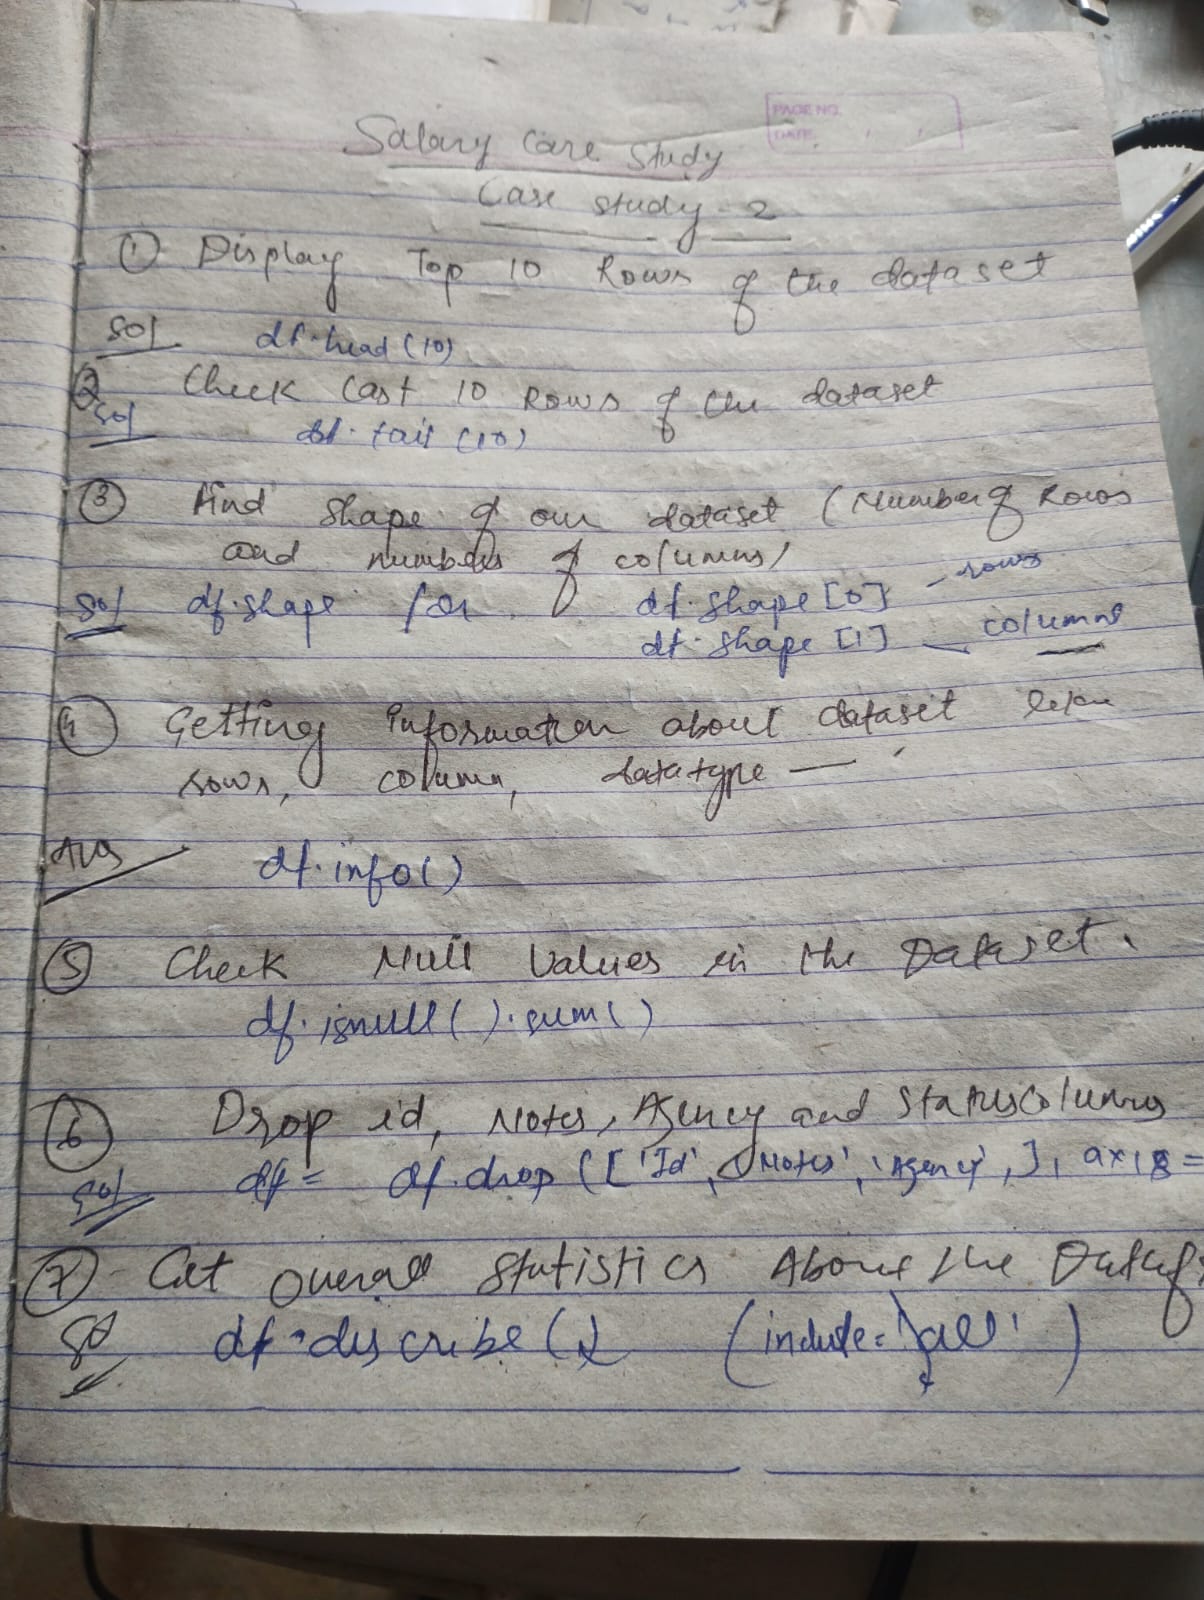 PAGE NO.
DATE
Salary Case Study
Case study - 2
① Display Top 10 Rows of the dataset
Sol df.head(10)
② Check Last 10 Rows of the dataset
Sol df.tail(10)
③ Find Shape of our dataset (Number of Rows
and numbers of columns)
Sol df.shape for df.shape[0] - rows
df.shape[1] - columns
④ Getting Information about dataset
rows, column, datatype —
Ans df.info()
⑤ Check Null Values in the Dataset.
df.isnull().sum()
⑥ Drop id, Notes, Agency and Status Columns
Sol df = df.drop(['Id', 'Notes', 'Agency',], axis =
⑦ Get Overall Statistics About the
Sol df.describe() (include='all')